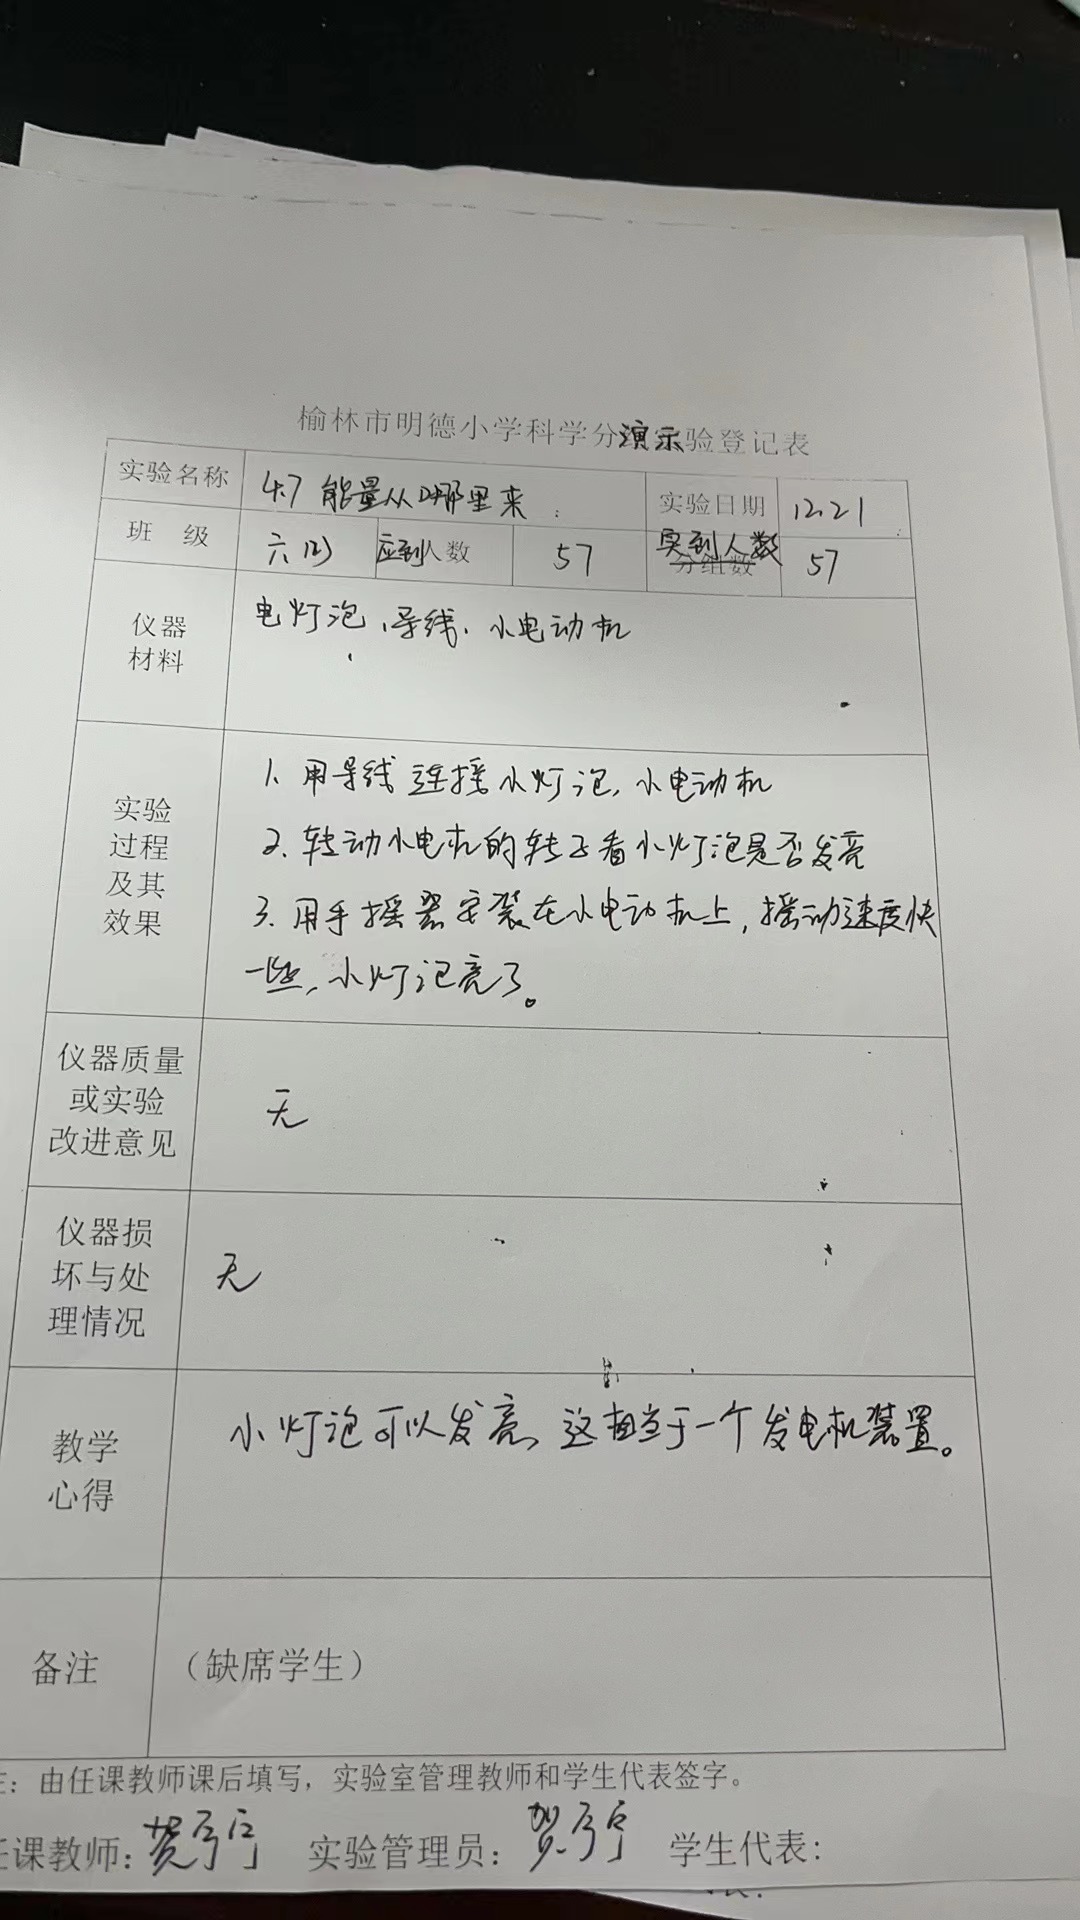 榆林市明德小学科学分演示验登记表
实验名称 4.7 能量从哪里来 实验日期 12.21
班 级 六(2) 应到人数 57 实到人数 分组数 57
仪器
材料
电灯泡、导线、小电动机
实验
过程
及其
效果
1. 用导线连接小灯泡,小电动机
2. 转动小电机的转子看小灯泡是否发亮
3. 用手摇器安装在小电动机上,摇动速度快
一些,小灯记亮了。
仪器质量
或实验
改进意见
无
仪器损
坏与处
理情况
无
教学
心得
小灯泡可以发亮、这相当于一个发电机装置。
备注 (缺席学生)
注:由任课教师课后填写,实验室管理教师和学生代表签字。
任课教师: 实验管理员: 学生代表: